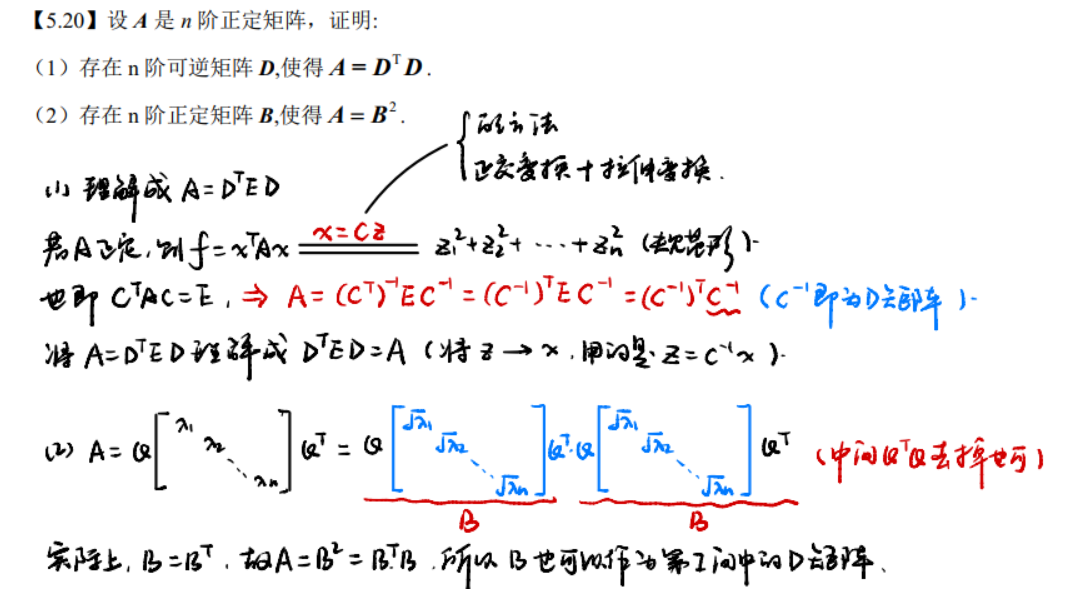 【5.20】设 A 是 n 阶正定矩阵，证明:
（1）存在 n 阶可逆矩阵 D,使得 A = DᵀD .
（2）存在 n 阶正定矩阵 B,使得 A = B² .
{ 配方法
正交变换 + 拉伸变换.
(1) 理解成 A = DᵀED
若A正定, 则 f = xᵀAx x = Cz z₁² + z₂² + ⋯ + zₙ² (规范形).
也即 CᵀAC = E, ⇒ A = (Cᵀ)⁻¹EC⁻¹ = (C⁻¹)ᵀEC⁻¹ = (C⁻¹)ᵀC⁻¹ (C⁻¹即为D矩阵).
将 A = DᵀED 理解成 DᵀED = A (将 z → x, 用的是 z = C⁻¹x).
(2) A = Q [λ₁ λ₂ ⋱ λₙ] Qᵀ = Q [√λ₁ √λ₂ ⋱ √λₙ] Qᵀ·Q [√λ₁ √λ₂ ⋱ √λₙ] Qᵀ (中间QᵀQ去掉也可)
B B
实际上, B = Bᵀ, 故A = B² = BᵀB, 所以 B 也可以作为第1问中的D矩阵.